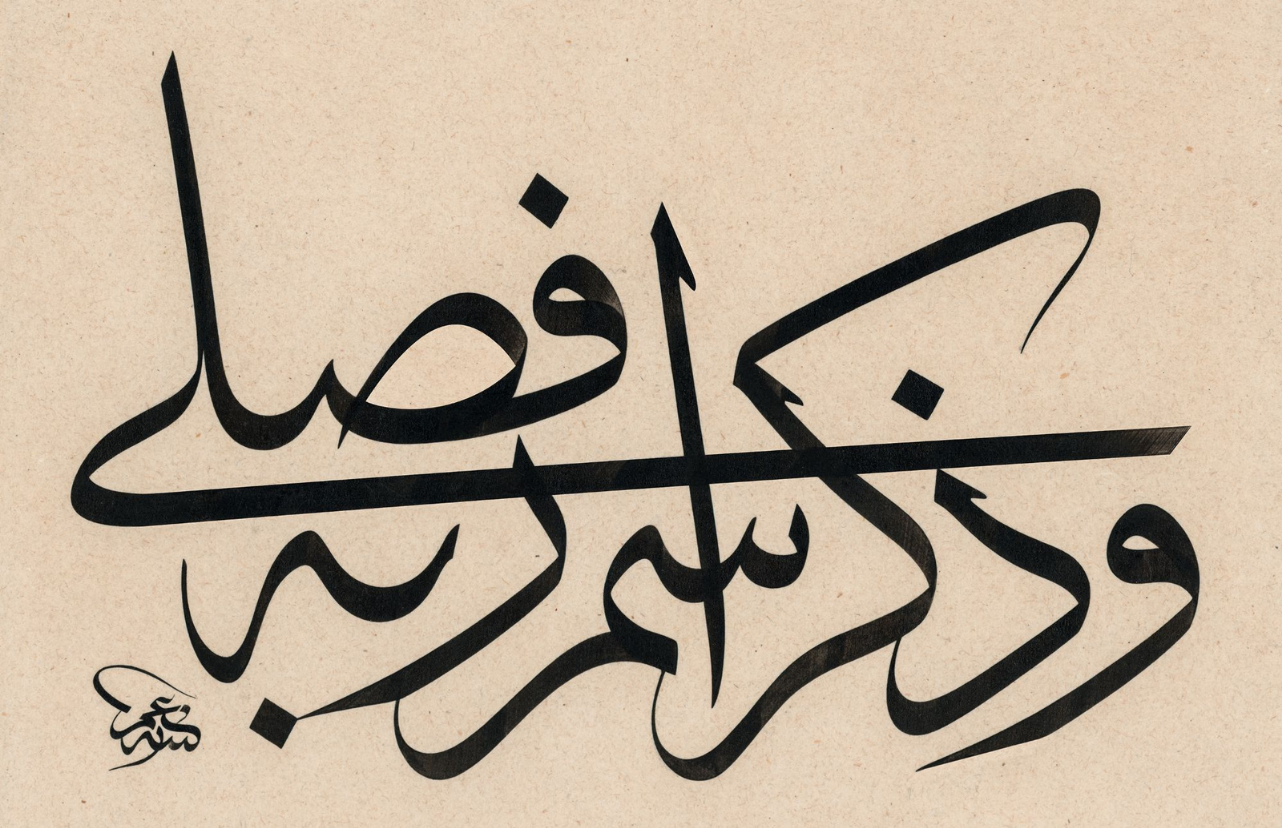 وذكر اسم ربه فصلى